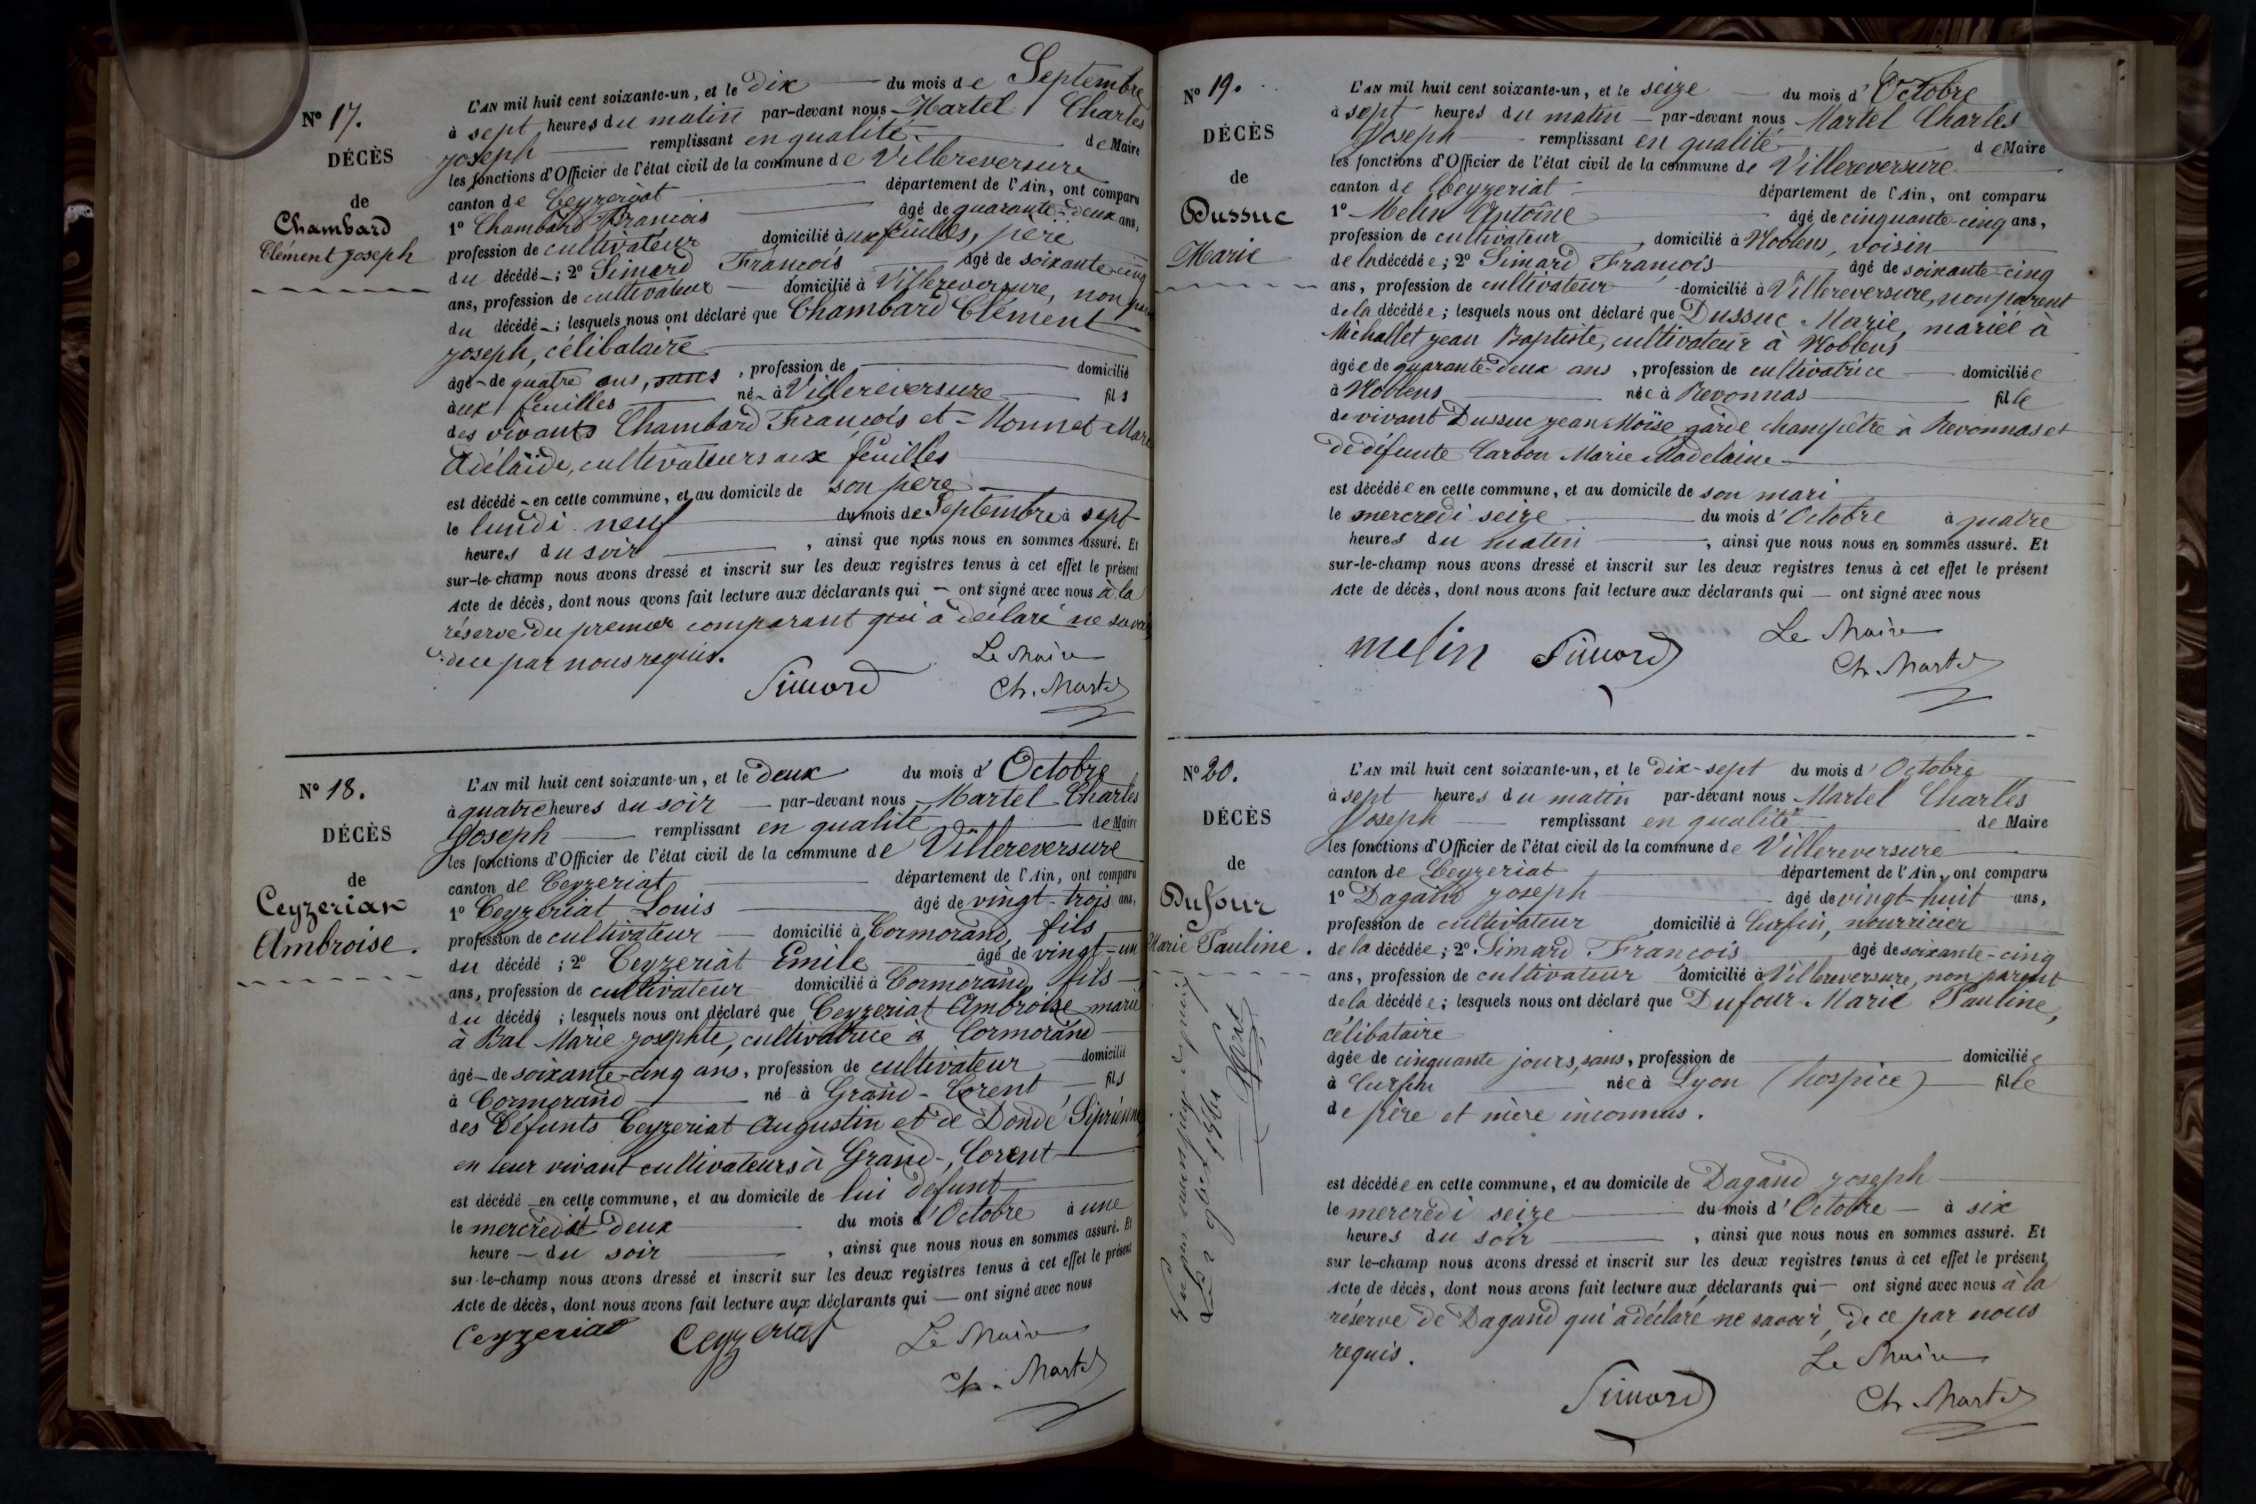 N° 17.
DÉCÈS
de
Chambard
Clément Joseph
L'AN mil huit cent soixante-un, et le Dix du mois de Septembre
à sept heures du matin par-devant nous Martel Charles
Joseph remplissant en qualité de Maire
les fonctions d'Officier de l'état civil de la commune de Villereversure
canton de Ceyzeriat département de l'Ain, ont comparu
1° Chambard François âgé de quarante-deux ans,
profession de cultivateur domicilié aux feuilles, père
du décédé ; 2° Simard François âgé de soixante-cinq
ans, profession de cultivateur domicilié à Villereversure, non
du décédé ; lesquels nous ont déclaré que Chambard Clément
Joseph, célibataire
âgé de quatre ans, sans, profession de domicilié
aux feuilles né à Villereversure fils
des vivants Chambard François et Monnet Marie
Adélaïde, cultivateurs aux feuilles
est décédé en cette commune, et au domicile de son père
le lundi neuf du mois de Septembre à sept
heures du soir, ainsi que nous nous en sommes assuré. Et
sur-le-champ nous avons dressé et inscrit sur les deux registres tenus à cet effet le présent
Acte de décès, dont nous avons fait lecture aux déclarants qui ont signé avec nous à la
réserve du premier comparant qui a déclaré ne savoir
de ce par nous requis.
Simard
Le Maire
Ch. Martel
N° 18.
DÉCÈS
de
Ceyzeriat
Ambroise.
L'AN mil huit cent soixante-un, et le deux du mois d'Octobre
à quatre heures du soir par-devant nous Martel Charles
Joseph remplissant en qualité de Maire
les fonctions d'Officier de l'état civil de la commune de Villereversure
canton de Ceyzeriat département de l'Ain, ont comparu
1° Ceyzeriat Louis âgé de vingt-trois ans,
profession de cultivateur domicilié à Cormorand, fils
du décédé ; 2° Ceyzeriat Emile âgé de vingt-un
ans, profession de cultivateur domicilié à Cormorand, fils
du décédé ; lesquels nous ont déclaré que Ceyzeriat Ambroise marié
à Bal Marie Josephte, cultivatrice à Cormorand
âgé de soixante-cinq ans, profession de cultivateur domicilié
à Cormorand né à Grand-Corent, fils
des défunts Ceyzeriat Augustin et de Donde
en leur vivant cultivateurs à Grand-Corent
est décédé en cette commune, et au domicile de lui défunt
le mercredi deux du mois d'Octobre à une
heure du soir, ainsi que nous nous en sommes assuré. Et
sur-le-champ nous avons dressé et inscrit sur les deux registres tenus à cet effet le présent
Acte de décès, dont nous avons fait lecture aux déclarants qui ont signé avec nous
Ceyzeriat Ceyzeriat
Le Maire
Ch. Martel
N° 19.
DÉCÈS
de
Dussuc
Marie
L'AN mil huit cent soixante-un, et le seize du mois d'Octobre
à sept heures du matin par-devant nous Martel Charles
Joseph remplissant en qualité de Maire
les fonctions d'Officier de l'état civil de la commune de Villereversure
canton de Ceyzeriat département de l'Ain, ont comparu
1° Melin Antoine âgé de cinquante-cinq ans,
profession de cultivateur, domicilié à Noblens, voisin
de la décédée ; 2° Simard François âgé de soixante-cinq
ans, profession de cultivateur domicilié à Villereversure, non parent
de la décédée ; lesquels nous ont déclaré que Dussuc Marie, mariée à
Michallet Jean Baptiste, cultivateur à Noblens
âgée de quarante-deux ans, profession de cultivatrice domiciliée
à Noblens née à Revonnas fille
de vivant Dussuc Jean Moïse garde champêtre à Revonnas et
de défunte Carbon Marie Madelaine
est décédée en cette commune, et au domicile de son mari
le mercredi seize du mois d'Octobre à quatre
heures du matin, ainsi que nous nous en sommes assuré. Et
sur-le-champ nous avons dressé et inscrit sur les deux registres tenus à cet effet le présent
Acte de décès, dont nous avons fait lecture aux déclarants qui ont signé avec nous
melin Simard
Le Maire
Ch. Martel
N° 20.
DÉCÈS
de
Dufour
Marie Pauline.
L'AN mil huit cent soixante-un, et le dix-sept du mois d'Octobre
à sept heures du matin par-devant nous Martel Charles
Joseph remplissant en qualité de Maire
les fonctions d'Officier de l'état civil de la commune de Villereversure
canton de Ceyzeriat département de l'Ain, ont comparu
1° Dagand Joseph âgé de vingt-huit ans,
profession de cultivateur, domicilié à Curfin, nourricier
de la décédée ; 2° Simard François âgé de soixante-cinq
ans, profession de cultivateur domicilié à Villereversure, non parent
de la décédée ; lesquels nous ont déclaré que Dufour Marie Pauline,
célibataire
âgée de cinquante jours, sans, profession de domiciliée
à Curfin née à Lyon (hospice) fille
de père et mère inconnus.
est décédée en cette commune, et au domicile de Dagand Joseph
le mercredi seize du mois d'Octobre à six
heures du soir, ainsi que nous nous en sommes assuré. Et
sur le-champ nous avons dressé et inscrit sur les deux registres tenus à cet effet le présent
Acte de décès, dont nous avons fait lecture aux déclarants qui ont signé avec nous à la
réserve de Dagand qui a déclaré ne savoir, de ce par nous
requis.
Simard
Le Maire
Ch. Martel